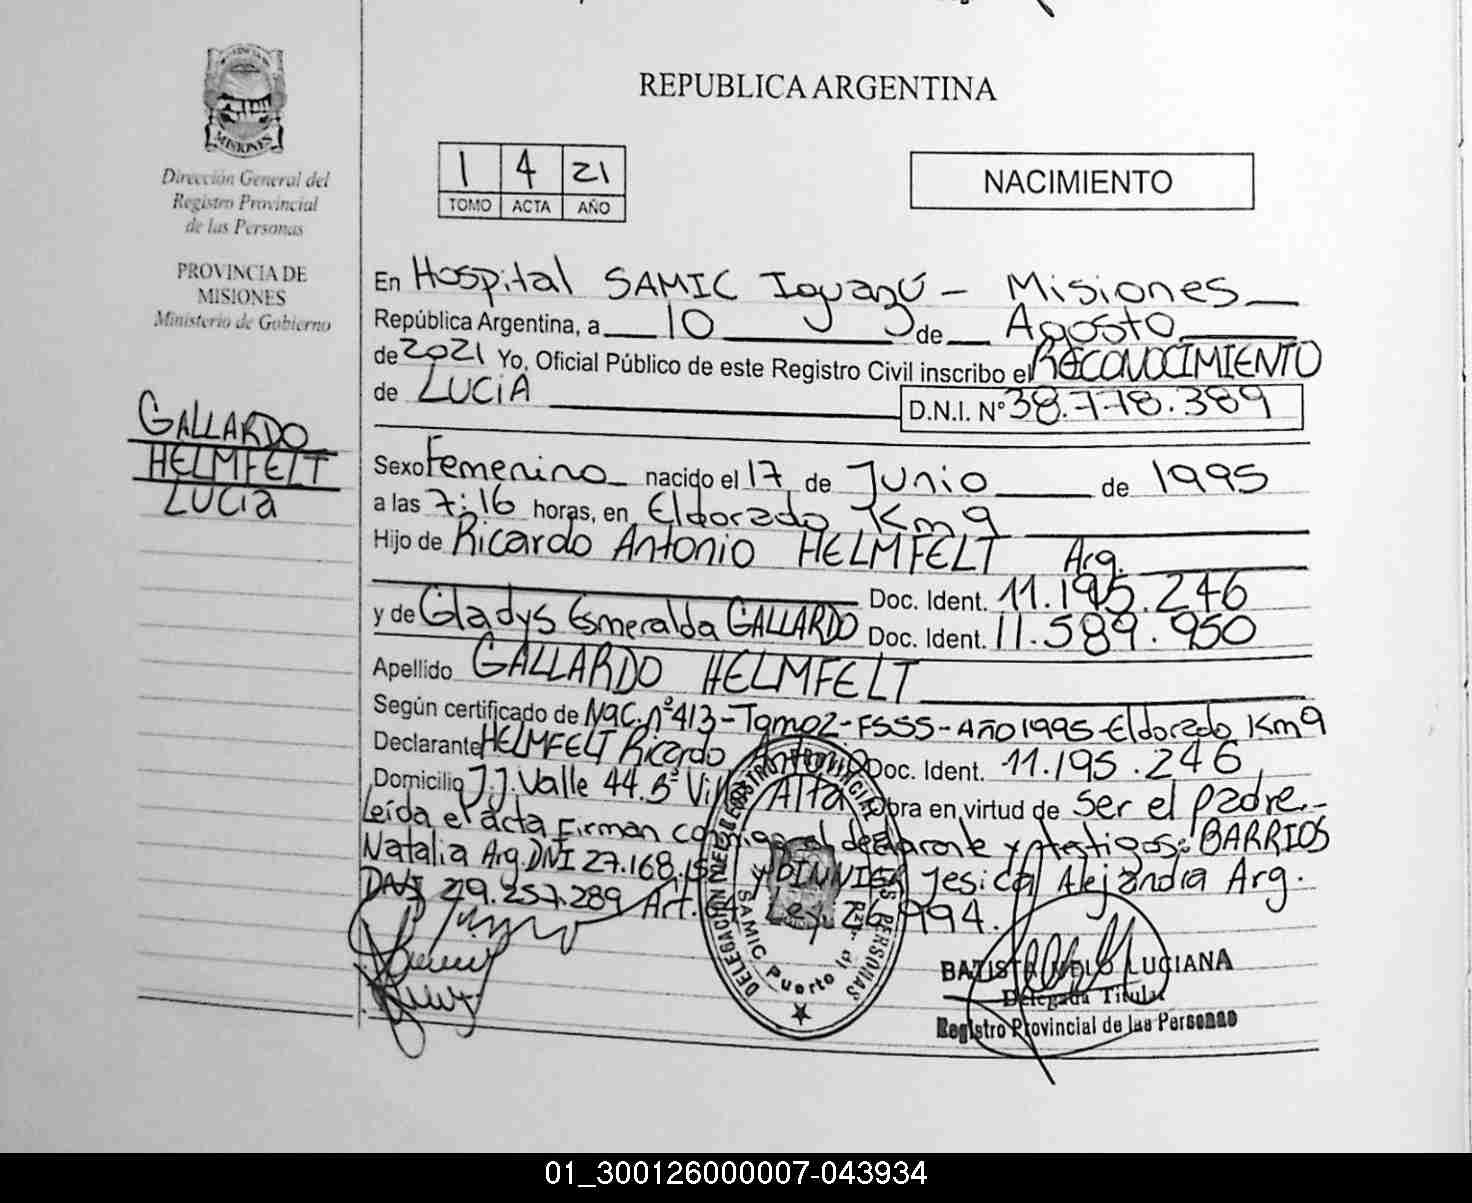 MISIONES
Dirección General del
Registro Provincial
de las Personas
PROVINCIA DE
MISIONES
Ministerio de Gobierno
GALLARDO
HELMFELT
LUCIA
REPUBLICA ARGENTINA
1 4 21
TOMO ACTA AÑO
NACIMIENTO
En Hospital SAMIC Iguazú - Misiones
República Argentina, a 10 de Agosto
de 2021 Yo, Oficial Público de este Registro Civil inscribo el RECONOCIMIENTO
de LUCIA D.N.I. N° 38.778.389
Sexo Femenino nacido el 17 de Junio de 1995
a las 7:16 horas, en Eldorado Km 9
Hijo de Ricardo Antonio HELMFELT Arg.
Doc. Ident. 11.195.246
y de Gladys Esmeralda GALLARDO Doc. Ident. 11.589.950
Apellido GALLARDO HELMFELT
Según certificado de Nac. nº 413-Tomo2-FSSS-Año1995-Eldorado Km9
Declarante HELMFELT Ricardo Antonio Doc. Ident. 11.195.246
Domicilio J.J. Valle 44. Bº Villa Alta Obra en virtud de ser el padre.-
Leída el acta firman conmigo el declarante y testigos: BARRIOS
Natalia Arg. DNI 27.168. y Yesica Alejandra Arg.
DNI 29.257.289 Art. Ley 26.994.
DELEGACION REGISTRO PROVINCIAL DE LAS PERSONAS
SAMIC Puerto
BATISTA LUCIANA
Delegada Titular
Registro Provincial de las Personas
01_300126000007-043934